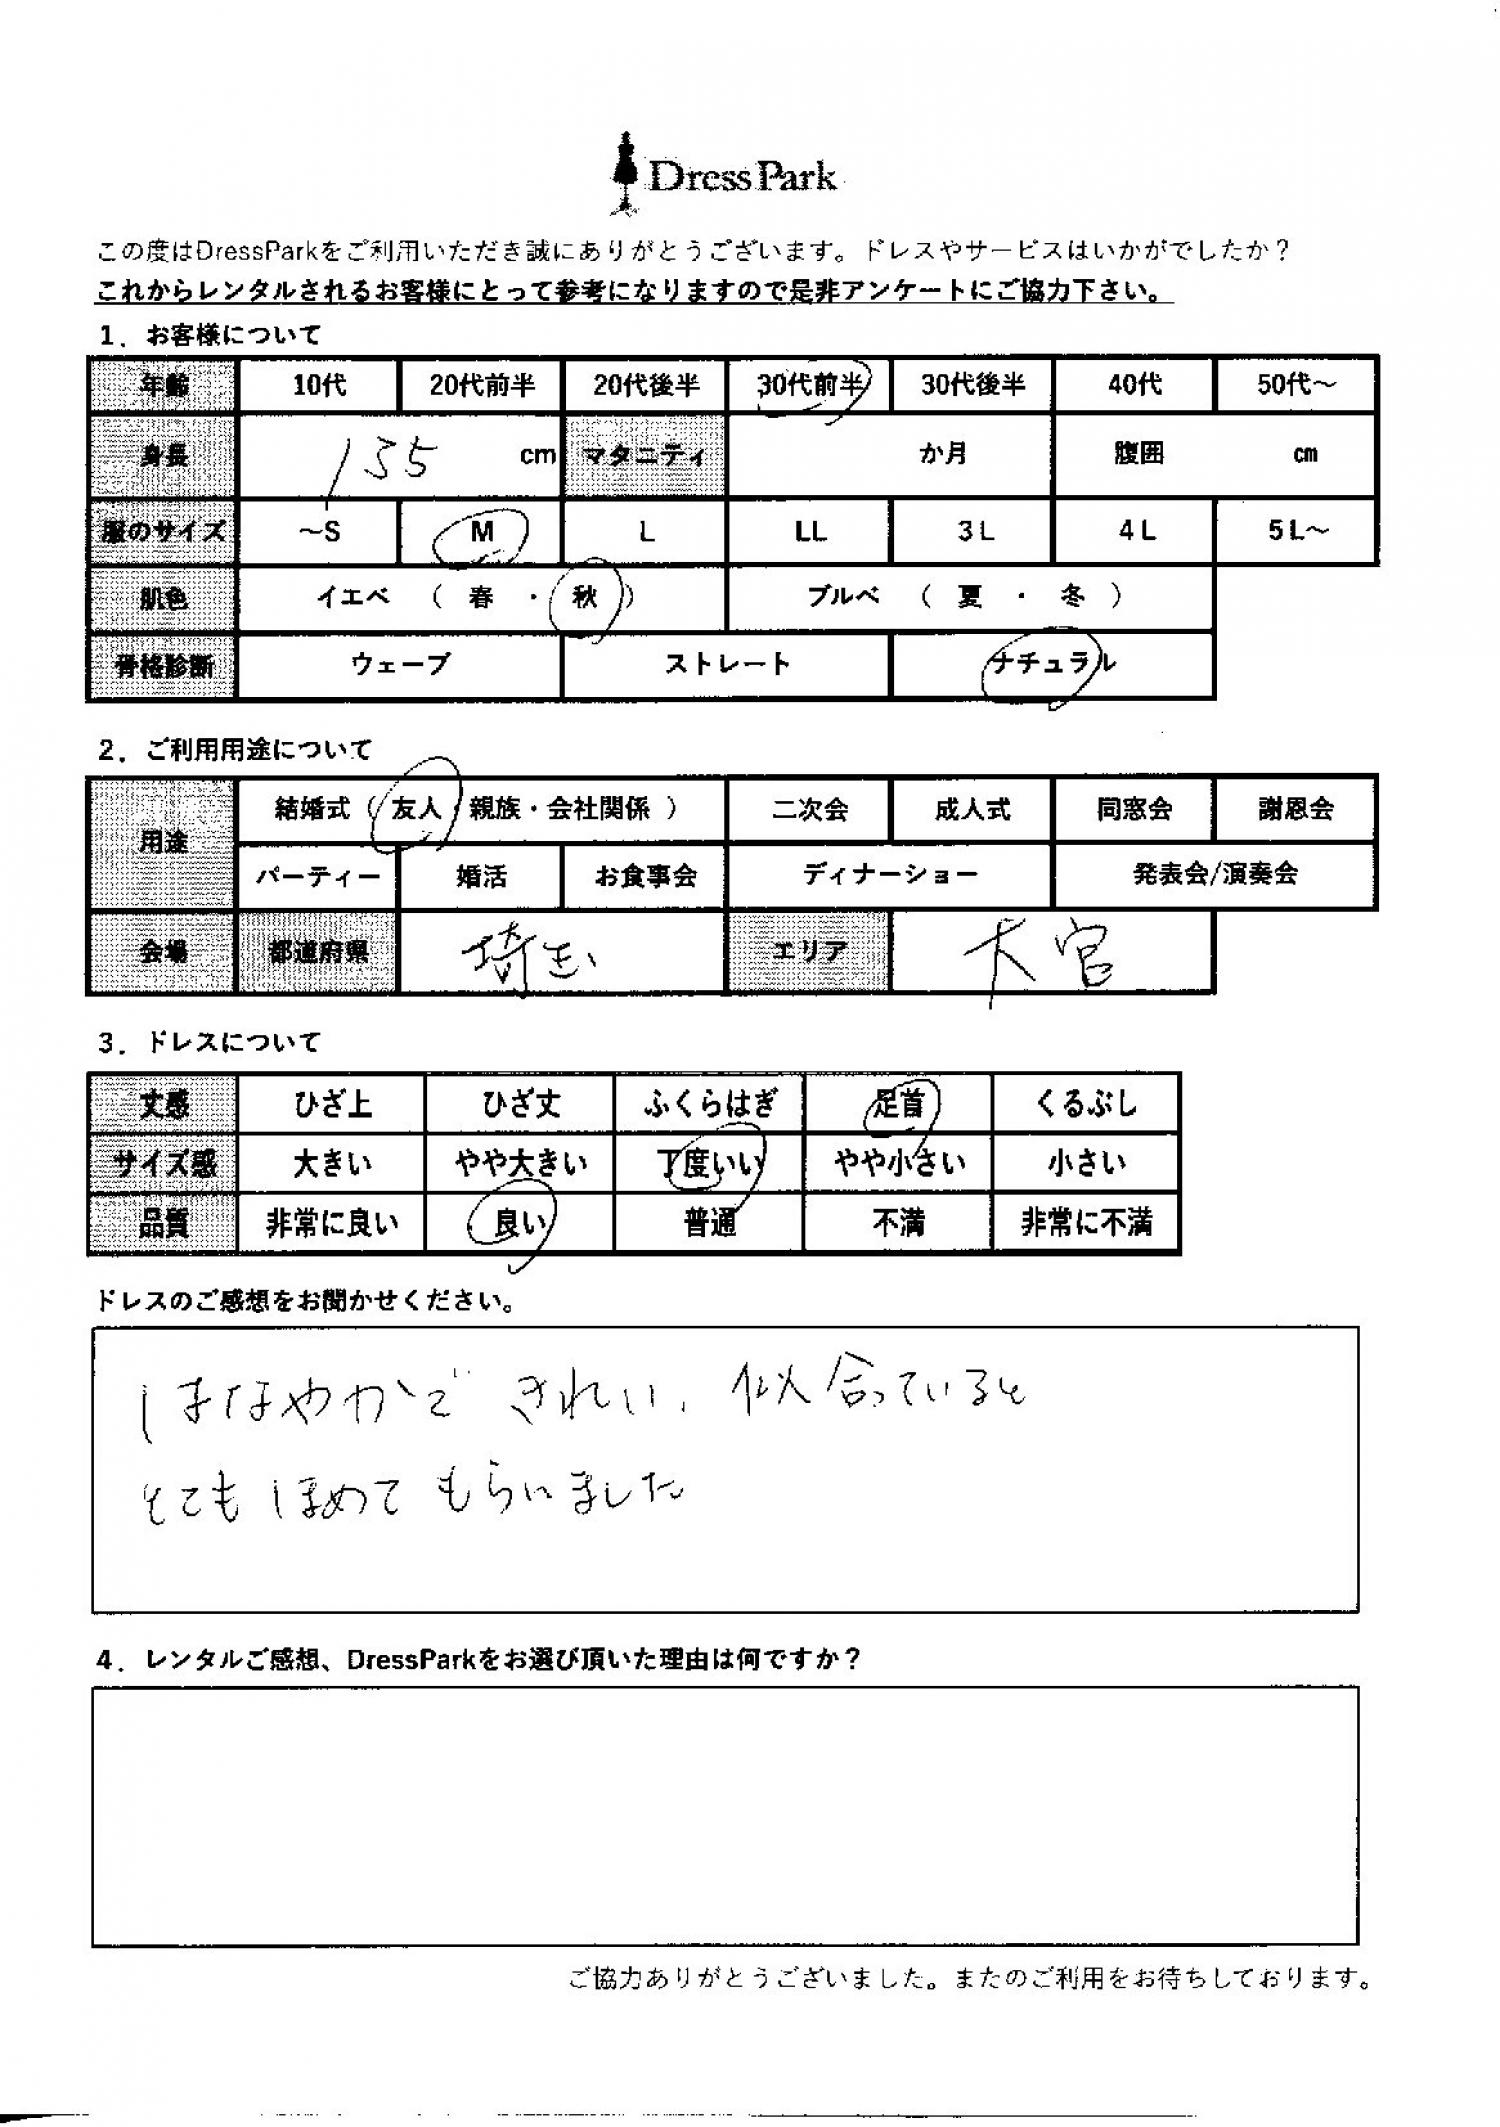 DressPark
この度はDressParkをご利用いただき誠にありがとうございます。ドレスやサービスはいかがでしたか？
これからレンタルされるお客様にとって参考になりますので是非アンケートにご協力下さい。
1．お客様について
年齢 10代 20代前半 20代後半 30代前半 30代後半 40代 50代～
身長 155 cm マタニティ か月 腹囲 cm
服のサイズ ～S M L LL 3L 4L 5L～
肌色 イエベ （ 春 ・ 秋 ） ブルベ （ 夏 ・ 冬 ）
骨格診断 ウェーブ ストレート ナチュラル
2．ご利用用途について
用途 結婚式（ 友人・親族・会社関係 ） 二次会 成人式 同窓会 謝恩会
パーティー 婚活 お食事会 ディナーショー 発表会/演奏会
会場 都道府県 埼玉 エリア 大宮
3．ドレスについて
丈感 ひざ上 ひざ丈 ふくらはぎ 足首 くるぶし
サイズ感 大きい やや大きい 丁度いい やや小さい 小さい
品質 非常に良い 良い 普通 不満 非常に不満
ドレスのご感想をお聞かせください。
はなやかで きれい、似合っていると
とても ほめて もらいました
4．レンタルご感想、DressParkをお選び頂いた理由は何ですか？
ご協力ありがとうございました。またのご利用をお待ちしております。